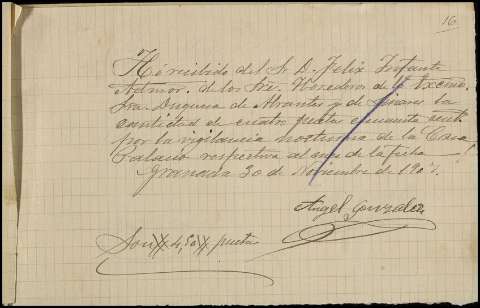 16
He recibido del Sr. D. Felix Infante
Admor. de los Sres. Herederos de la Excma.
Sra. Duquesa de Abrantes y de Linares la
cantidad de cuatro pesetas cincuenta cents
por la vigilancia nocturna de la Casa
Palacio respectiva al mes de la fecha
Granada 30 de Noviembre de 190
Angel Gonzalez
Son 4,50 pesetas